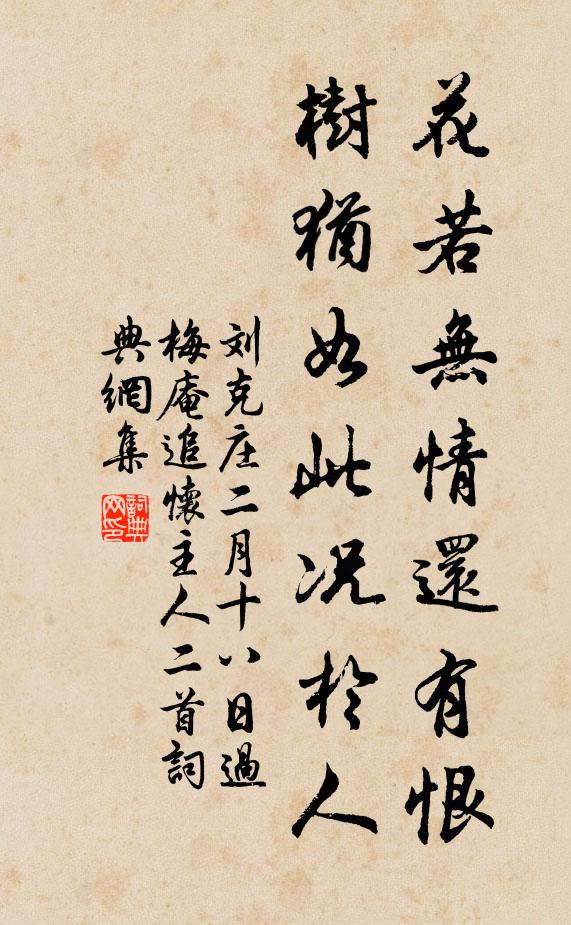 花若無情還有恨
樹猶如此況於人
刘克庄二月十八日過
梅庵追懷主人二首詞
典網集
詞典网印